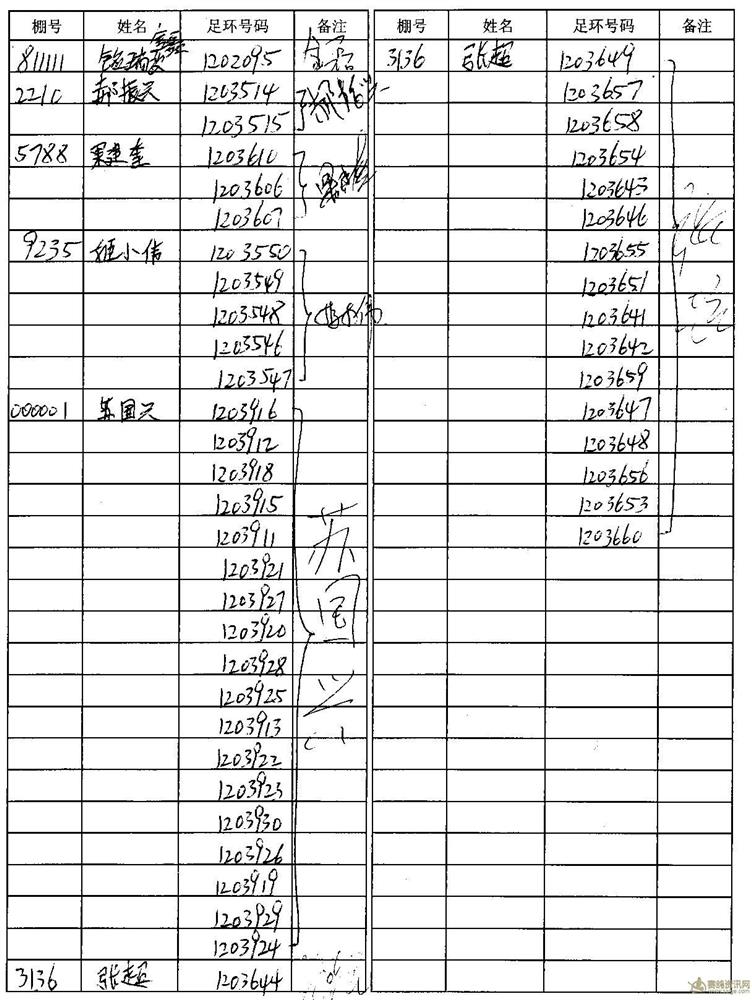 棚号 姓名 足环号码 备注
811111 1202095
2210 郝振兴 1203514
1203515
5788 1203610
1203606
1203607
9235 姬小伟 1203550
1203549
1203548
1203546
1203547
000001 苏国兴 1203916
1203912
1203918
1203915
1203911
1203921
1203927
1203920
1203928
1203925
1203913
1203922
1203923
1203930
1203926
1203919
1203929
1203924
苏国兴
3136 张超 1203644
棚号 姓名 足环号码 备注
3136 张超 1203649
1203657
1203658
1203654
1203643
1203646
1203655
1203651
1203641
1203642
1203659
1203647
1203648
1203656
1203653
1203660
赛鸽资讯网